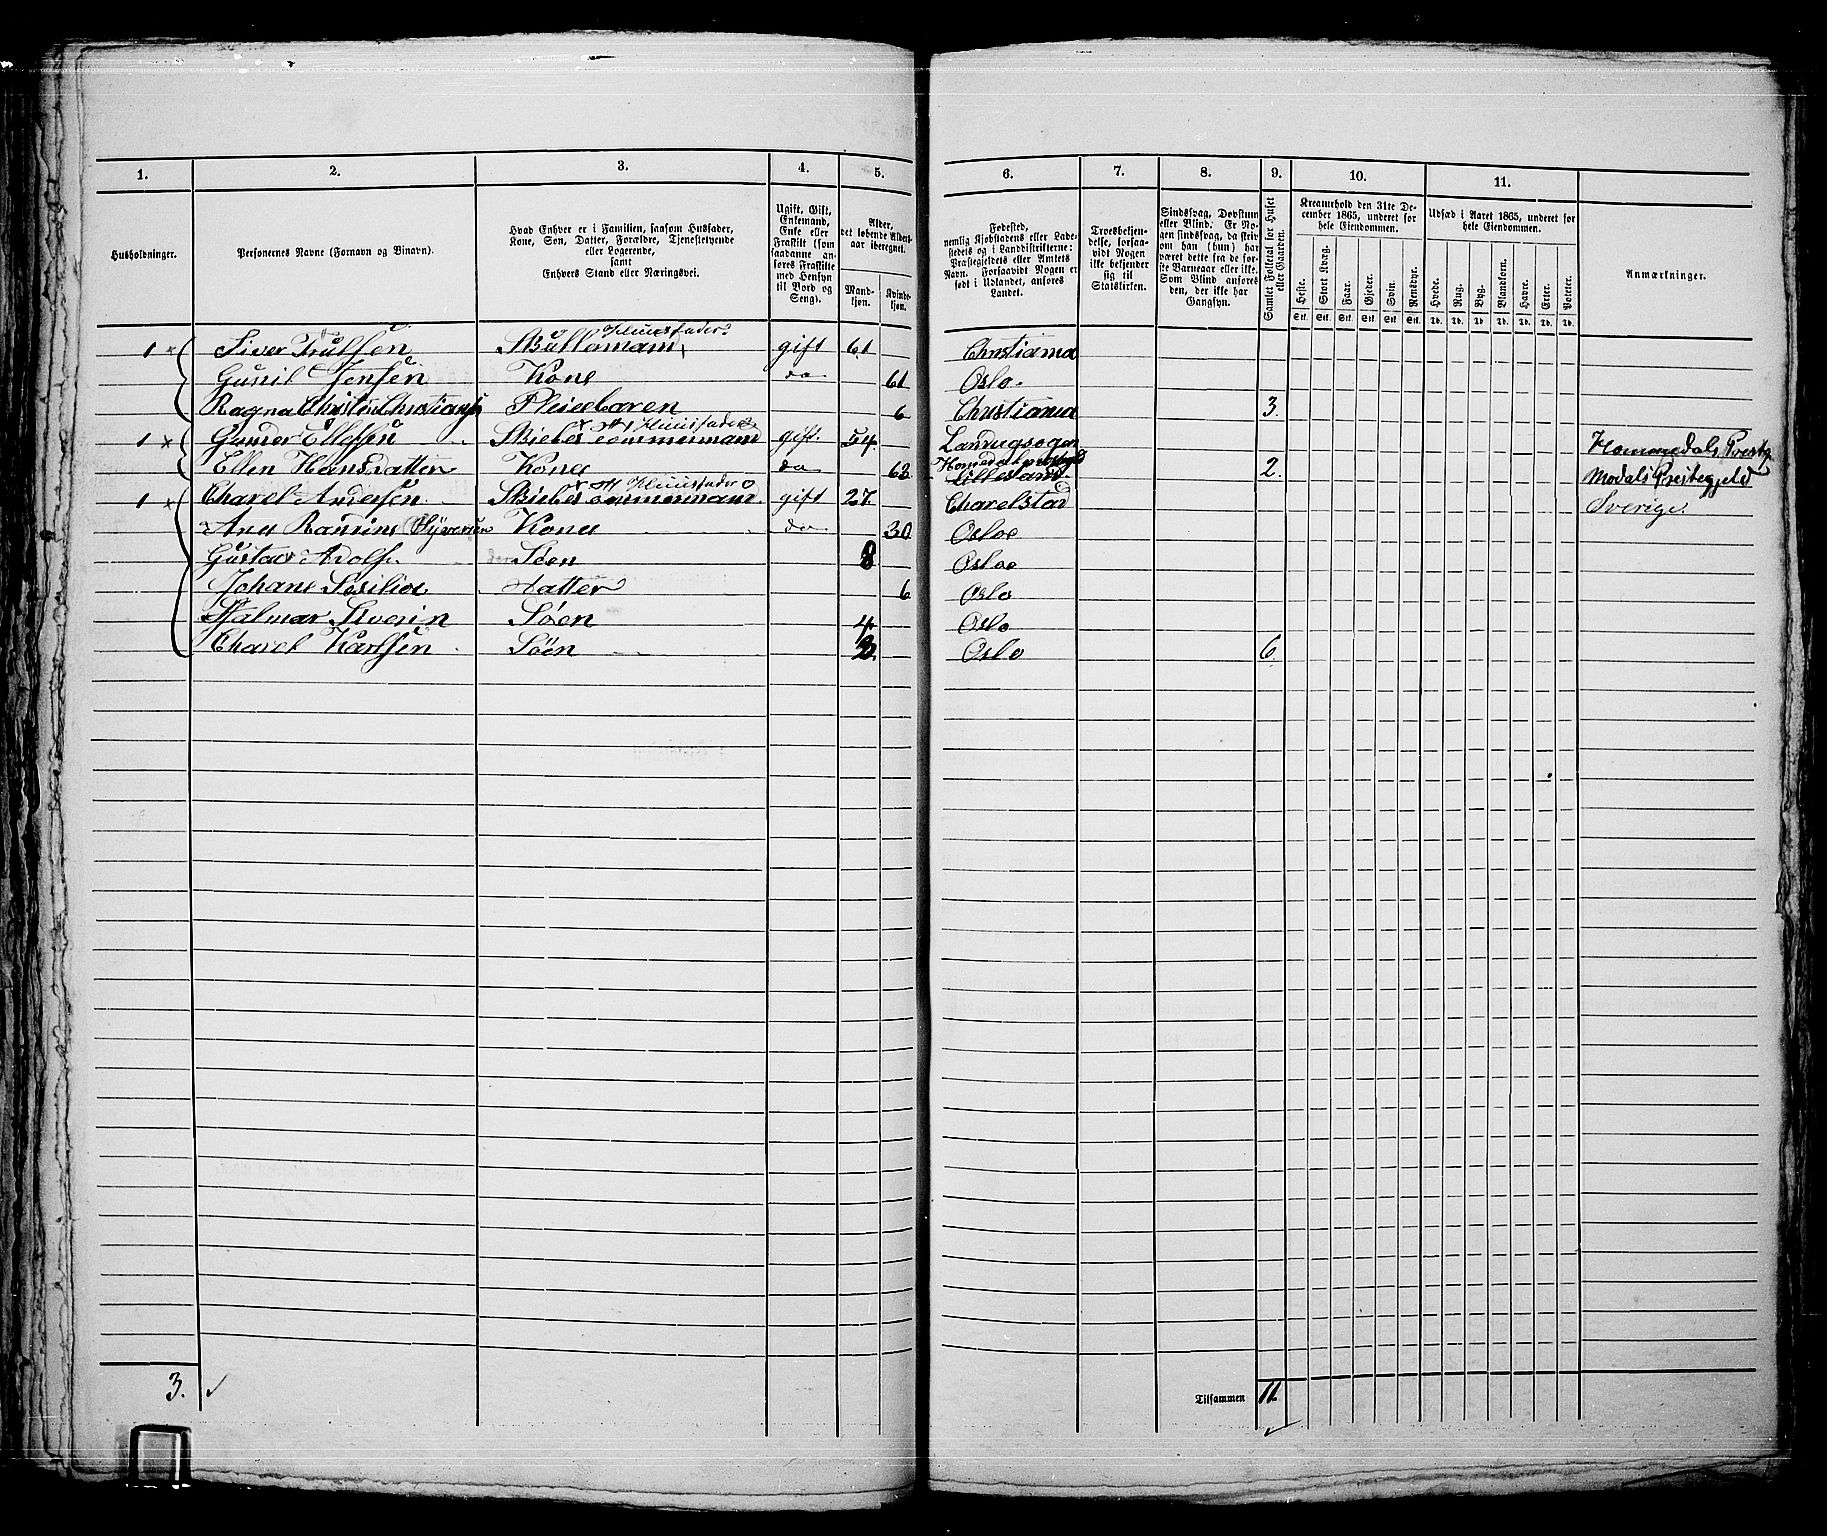 1. 2. 3. 4. 5. 6. 7. 8. 9. 10. 11.
Husholdninger.
Personernes Navne (Fornavn og Binavn).
Hvad Enhver er i Familien, saasom Husfader,
Kone, Søn, Datter, Forældre, Tjenestetyende
eller Logerende,
samt
Enhvers Stand eller Næringsvei.
Ugift, Gift,
Enkemand,
Enke eller
Fraskilt (som
saadanne an-
føres Fraskilte
med Hensyn
til Bord og
Seng).
Alder,
det løbende Alders-
aar iberegnet.
Mand-
kjøn.
Kvinde-
kjøn.
Fødested,
nemlig Kjøbstadens eller Lade-
stedets og i Landdistrikterne:
Præstegjeldets eller Amtets
Navn. Forsaavidt Nogen er
født i Udlandet, anføres
Landet.
Troesbekjen-
delse, forsaa-
vidt Nogen
ikke bekjender
sig til
Statskirken.
Sindssvag, Døvstum
eller Blind. Er No-
gen sindssvag, da skriv
om han (hun) har
været dette fra de før-
ste Barneaar eller ikke.
Som Blind anføres
den, der ikke har
Gangsyn.
Samlet Folketal for Huset
eller Gaarden.
Kreaturhold den 31te De-
cember 1865, underet for
hele Eiendommen.
Heste. Stort Kvæg. Faar. Gjeder. Svin. Rensdyr.
Stk. Stk. Stk. Stk. Stk. Stk.
Udsæd i Aaret 1865, underet for
hele Eiendommen.
Hvede. Rug. Byg. Blandkorn. Havre. Erter. Poteter.
Td. Td. Td. Td. Td. Td. Td.
Anmærkninger.
1 × Siver Trulsen Huusfader gift 61 Christiania
Gunil Jensen Kone do 61 Oslo.
Ragna Christine Pleiebaren 6 Christiania 3.
1 × Gunder Ellefsen Huusfader gift. 54. Hommedals Prestg.
Ellen Hansdatter Kone do 63 Lillesand 2. Prestegjeld
1 × Charel Andersen Huusfader gift 27. Charelstad Sverige.
Ane Kone do 30 Osloe
Gustav Adolf. Søen 8 Osloe
Johane Datter 6 Oslo
Hjalmar Siverin Søen 4 Oslo
Charel Karlsen Søen 2. Oslo 6.
3. ✓ Tilsammen 11
✓